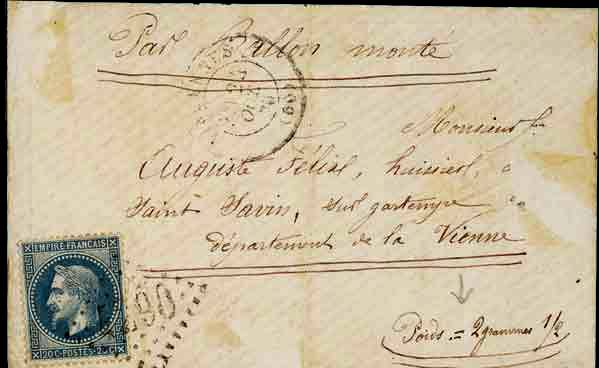 Par Ballon monté
(60)
Monsieur
Auguste Félix, huissier, à
Saint Savin, sur gartempe
département de la Vienne
EMPIRE FRANCAIS
20 C POSTES 20 C
Poids = 2 grammes 1/2